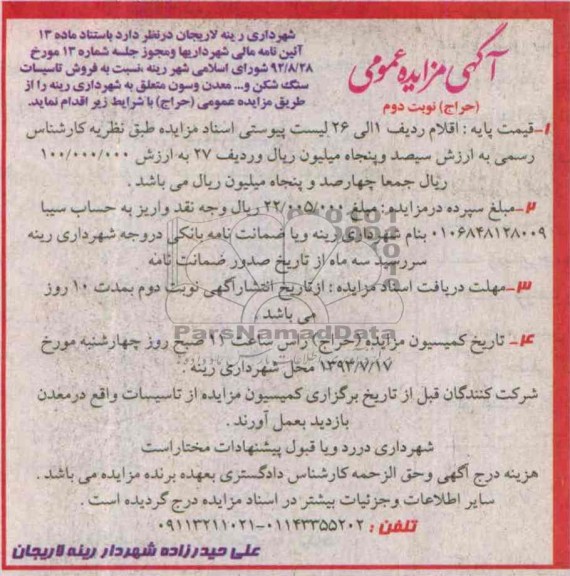 شهرداری رینه لاریجان درنظر دارد باستناد ماده ۱۳
آئین نامه مالی شهرداریها ومجوز جلسه شماره ۱۳ مورخ
۹۳/۸/۲۸ شورای اسلامی شهر رینه ،نسبت به فروش تاسیسات
سنگ شکن و... معدن وسون متعلق به شهرداری رینه را از
طریق مزایده عمومی (حراج) با شرایط زیر اقدام نماید.
آگهی مزایده عمومی
(حراج) نوبت دوم
۱-قیمت پایه : اقلام ردیف ۱الی ۲۶ لیست پیوستی اسناد مزایده طبق نظریه کارشناس
رسمی به ارزش سیصد وپنجاه میلیون ریال وردیف ۲۷ به ارزش ۱۰۰/۰۰۰/۰۰۰
ریال جمعا چهارصد و پنجاه میلیون ریال می باشد .
۲-مبلغ سپرده درمزایده : مبلغ ۲۲/۰۰۵/۰۰۰ ریال وجه نقد واریز به حساب سیبا
۰۱۰۶۸۴۸۱۲۸۰۰۹ بنام شهرداری رینه ویا ضمانت نامه بانکی دروجه شهرداری رینه
سررسید سه ماه از تاریخ صدور ضمانت نامه
۳-مهلت دریافت اسناد مزایده : ازتاریخ انتشارآگهی نوبت دوم بمدت ۱۰ روز
می باشد .
ParsNamadData
۴- تاریخ کمیسیون مزایده (حراج) راس ساعت ۱۱ صبح روز چهارشنبه مورخ
۱۳۹۳/۷/۱۷ محل شهرداری رینه .
شرکت کنندگان قبل از تاریخ برگزاری کمیسیون مزایده از تاسیسات واقع درمعدن
بازدید بعمل آورند .
شهرداری دررد ویا قبول پیشنهادات مختاراست
هزینه درج آگهی وحق الزحمه کارشناس دادگستری بعهده برنده مزایده می باشد .
سایر اطلاعات وجزئیات بیشتر در اسناد مزایده درج گردیده است .
تلفن : ۰۱۱۴۳۳۵۵۲۰۲-۰۹۱۱۳۲۱۱۰۲۱
علی حیدرزاده شهردار رینه لاریجان